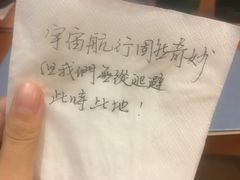 宇宙航行固然奇妙
但我們無從逃避
此時此地！